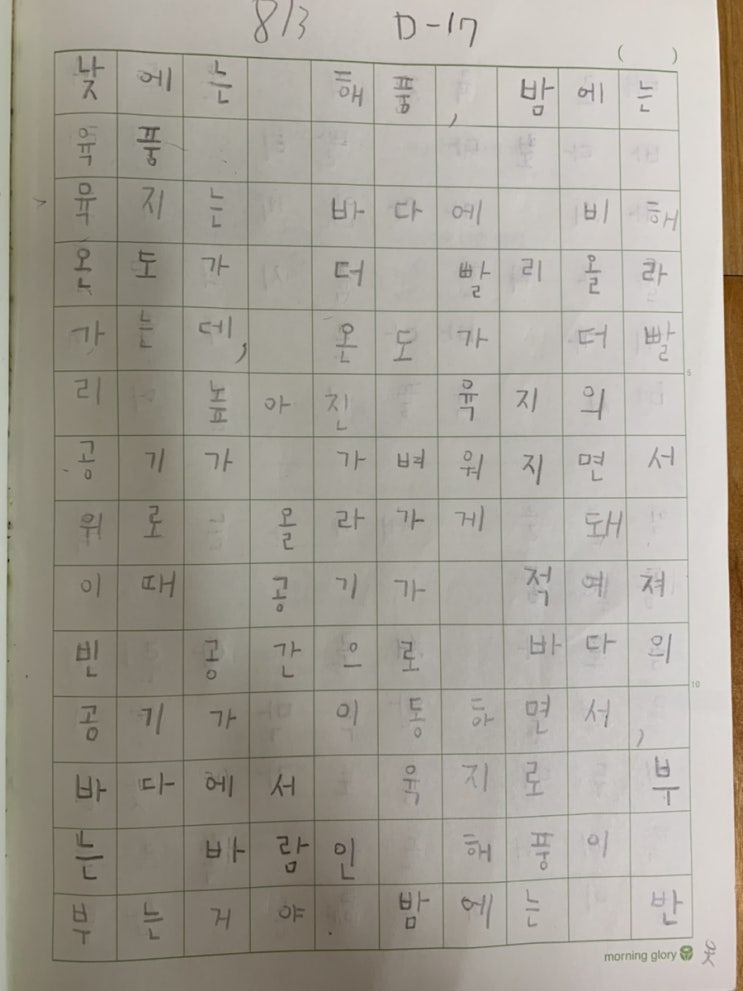 8/3 D-17
( )
낮에는 해풍, 밤에는
육풍
육지는 바다에 비해
온도가 더 빨리 올라
가는데, 온도가 더 빨
리 높아진 육지의
공기가 가벼워지면서
위로 올라가게 돼
이때 공기가 적여져
빈 공간으로 바다의
공기가 이동하면서,
바다에서 육지로 부
는 바람인 해풍이
부는거야. 밤에는 반
5
10
morning glory